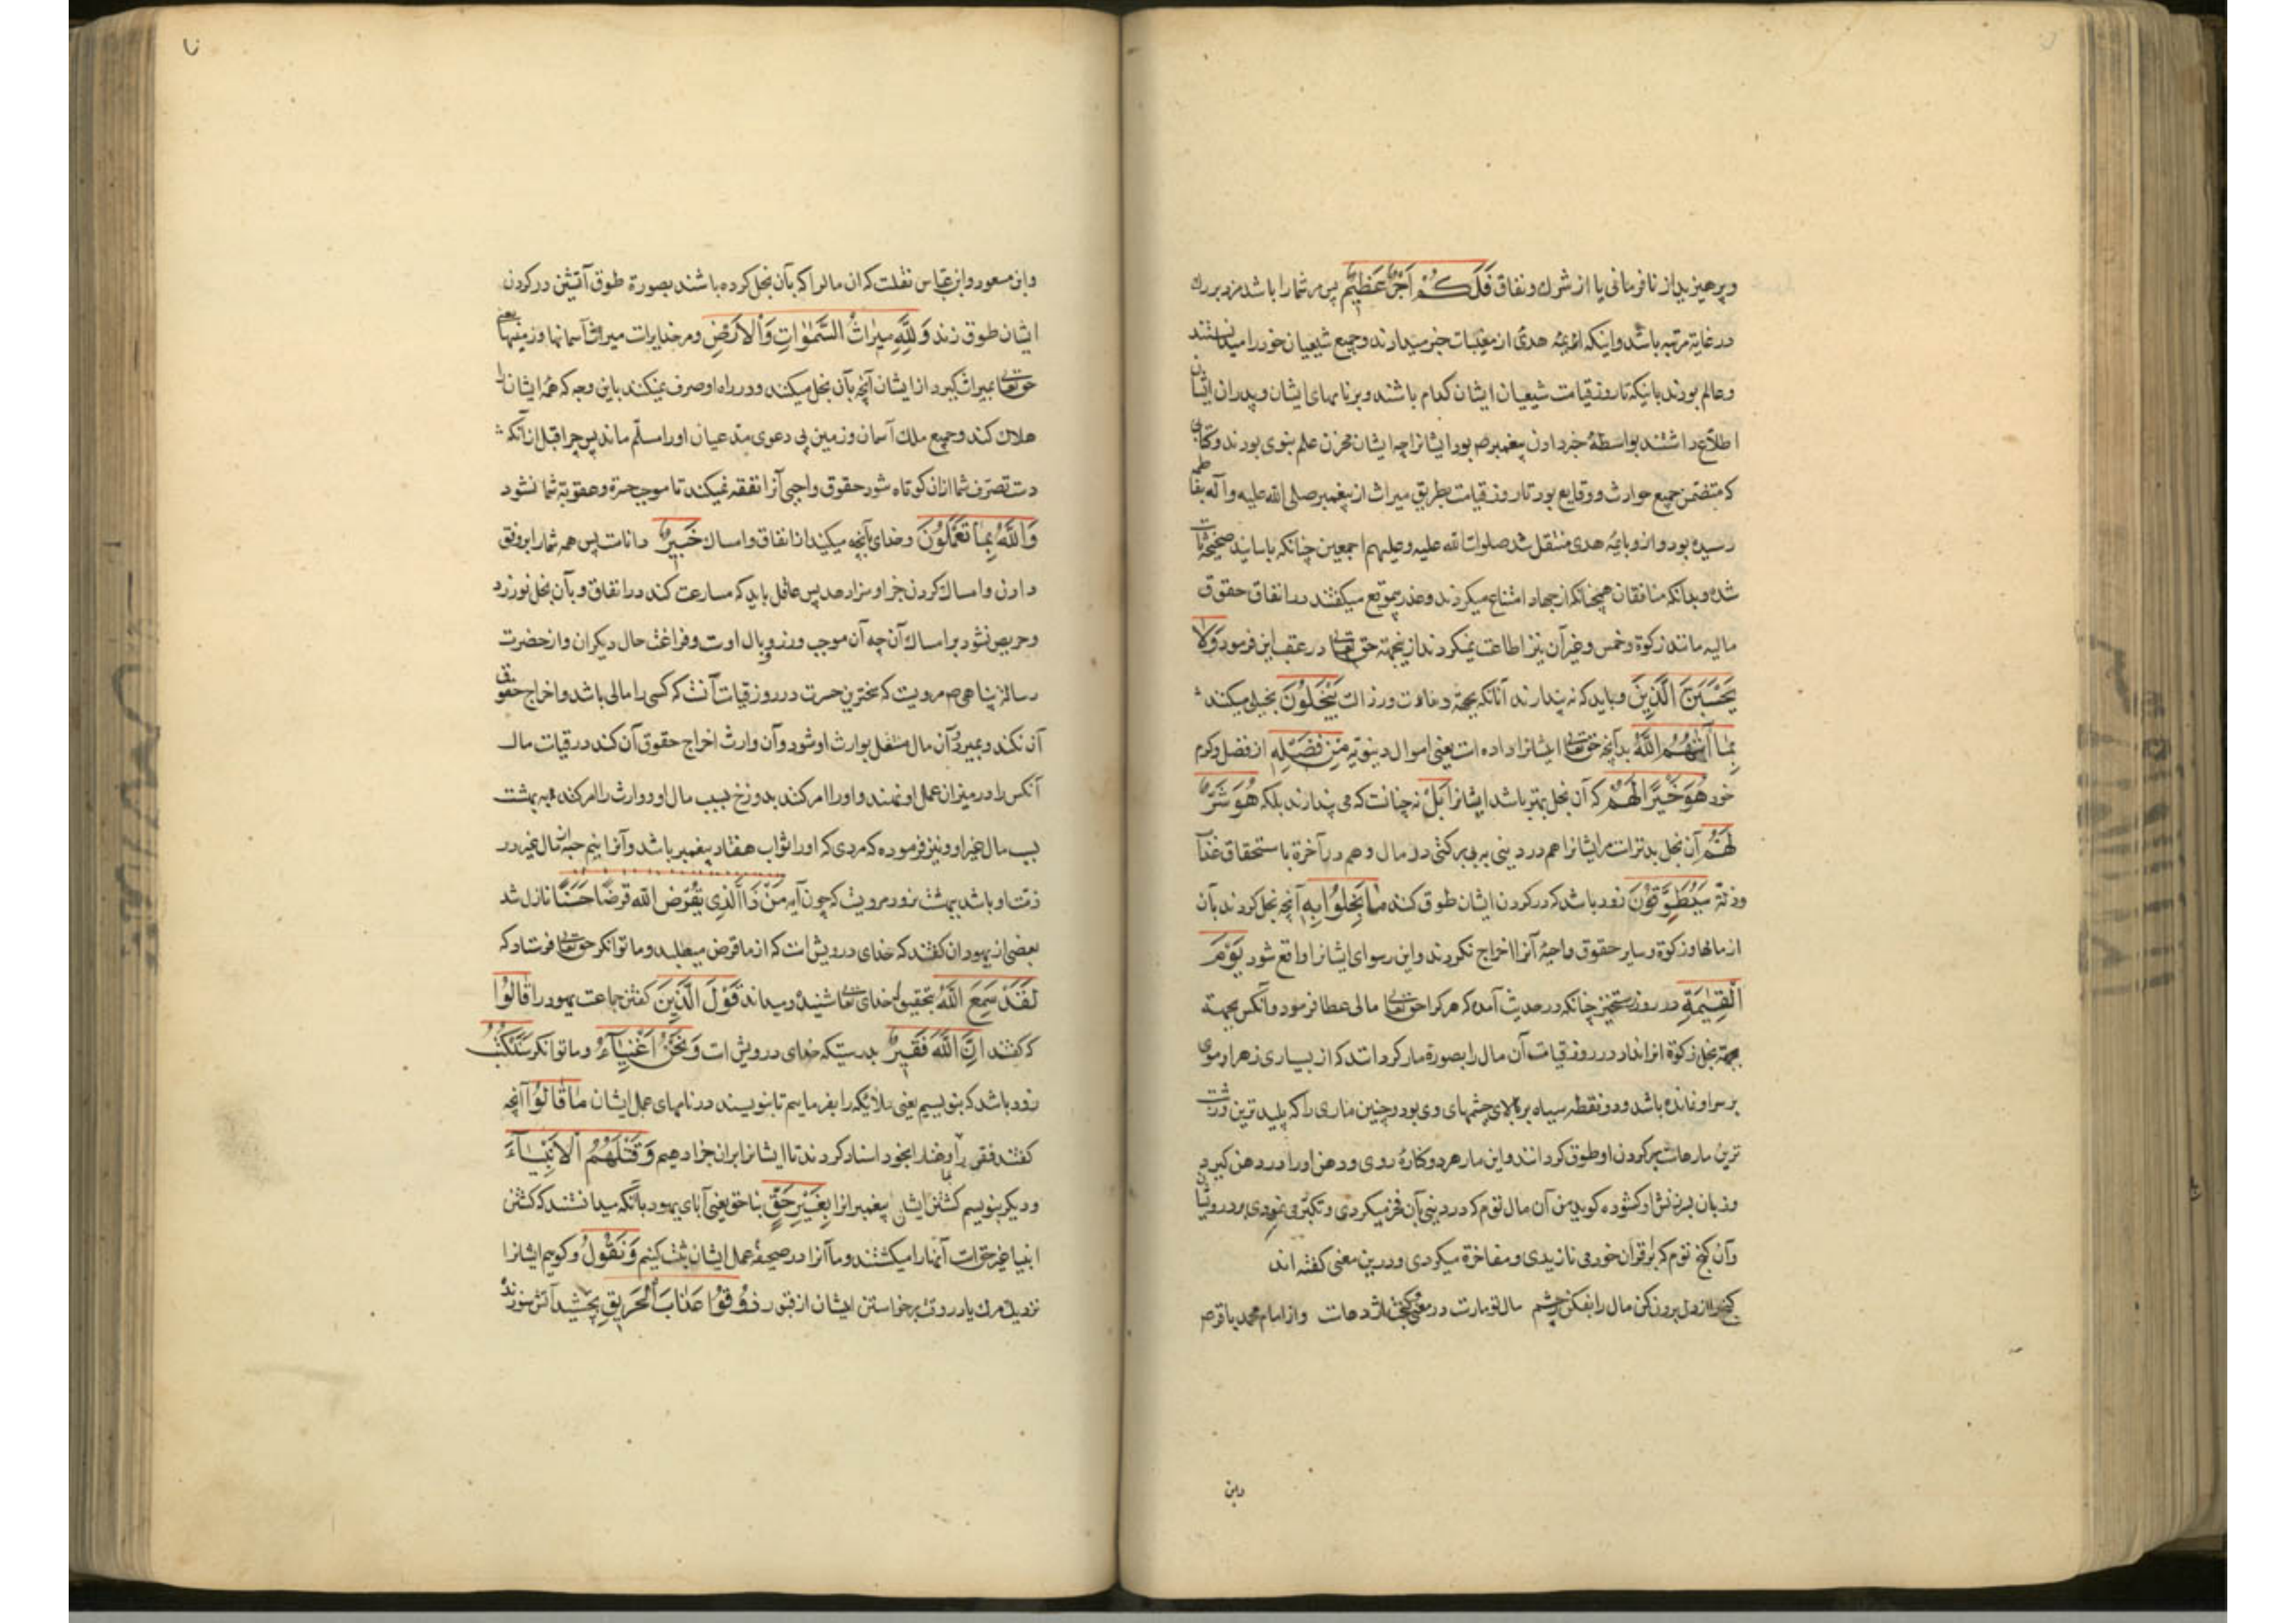 وپرهیزید از نافرمانی یا از شرك ونفاق فَلَكُمْ اَجْرٌ عَظِیْمٌ پس مر شما را باشد مزد بزرك
در غایة مرتبه باشد واینکه ائمهٔ هدی از مغیبات خبر میدارند وجمیع شیعیان خود را میدانستند
وعالم بودند بانیکه تا روز قیامت شیعیان ایشان کدام باشند وبر نامهای ایشان وپدران ایشان
اطلاع داشتند بواسطهٔ خبر دادن پیغمبر ص بود ایشانرا چه ایشان مخزن علم نبوی بودند وکتابی
که متضمن جمیع حوادث ووقایع بود تا روز قیامت بطریق میراث از پیغمبر صلی الله علیه وآله بفاطمه
رسیده بود واز و بایمهٔ هدی منتقل شد صلوات الله علیه وعلیهم اجمعین چنانکه باسانید صحیحه ثابت
شده وبدانکه منافقان همچنانکه از جهاد امتناع میکردند وعذر بیموقع میکفتند در انفاق حقوق
مالیه مانند زکوة وخمس وغیر آن نیز اطاعت نمیکردند ازینجهة حق تعالی در عقب این فرمود وَلَا
یَحْسَبَنَّ الَّذِینَ وباید که نه پندارند آنانکه بجهة دنائت ورزالت یَبْخَلُونَ بخیلی میکنند
بِمَا آتٰیهُمُ اللّٰهُ بدانچه حق تعالی ایشانرا داده است یعنی اموال دینویه مِنْ فَضْلِهِ از فضل وکرم
خود هُوَ خَیْرًا لَهُمْ که آن بخل بهتر باشد ایشانرا بَلْ نه چنانست که می پندارند بلکه هُوَ شَرٌّ
لَهُمْ آن بخل بدتراست مر ایشانرا هم در دینی به بی برکتی در مال وهم در آخرة باستحقاق عذاب
سَیُطَوَّقُونَ زود باشد که در کردن ایشان طوق کند مَا بَخِلُوا بِهِ آنچه بخل کردند بآن
از مالها وزکوة وسایر حقوق واجبهٔ آنرا اخراج نکردند واین رسوای ایشانرا واقع شود یَوْمَ
الْقِیٰمَةِ در روز رستخیز چنانکه در حدیث آمده که هر کرا حق تعالی مالی عطا فرمود وآنکس بجهة
بجهة بخل زکوة انرا نداد در روز قیامت آن مال را بصورة مار کرداند که از بسیاری زهر او موی
بر سر او نمانده باشد ودو نقطه سیاه بر بالای چشمهای وی بود وچنین ماری را که پلید ترین وزشت
ترین مارهاست بر کردن او طوق کردانند واین مار هر دو کنارهٔ روی ودهن اورا در دهن کیرد
وزبان بسرزنش او کشوده کوید من آن مال توم که در دینی بآن فخر میکردی وتکبر می نمودی بر درویشان
وآن کنج توم که بر اقران خود می نازیدی ومفاخرة میکردی ودرین معنی کفته اند
کنج را از دل برون کن مال را بفکن ز چشم مال تو مارت در معنی وکنجت اژدهات واز امام محمد باقر ص
وابن
وابن مسعود وابن عباس نقلست که ان مالرا که بآن بخل کرده باشند بصورة طوق آتشین در کردن
ایشان طوق زند وَلِلّٰهِ مِیْرَاثُ السَّمٰوٰاتِ وَالْاَرْضِ ومر خدایراست میراث آسمانها وزمینها یعنی
حق تعالی بمیراث کیرد از ایشان آنچه بآن بخل میکنند ودر راه او صرف نمیکنند باین وجه که همهٔ ایشان را
هلاك کند وجمیع ملك آسمان وزمین بی دعوی مدعیان اورا مسلم ماند پس چرا قبل از آنکه
دست تصرف شما ازان کوتاه شود حقوق واجبی آنرا نفقه نمیکنند تا موجب حسرة وعقوبة شما نشود
وَاللّٰهُ بِمَا تَعْمَلُونَ وخدای بآنچه میکنید از انفاق وامساك خَبِیرٌ داناست پس همه شمارا بر وفق
دادن وامساك کردن جزا وسزا دهد پس عاقل باید که مسارعت کند در انفاق وبآن بخل نورزد
وحریص نشود بر امساك آن چه آن موجب وزر ووبال اوست وفراغت حال دیکران واز حضرت
رسالة پناهی ص مرویست که سختترین حسرت در روز قیامت آنست که کسی را مالی باشد واخراج حقوق
آن نکند وبمیرد وآن مال منتقل بوارث او شود وآن وارث اخراج حقوق آن کند در قیامت مال
آنکس را در میزان عمل او نهند واورا امر کند بدوزخ بسبب مال او ووارث را امر کند به بهشت
بسبب مال غیر او ونیز فرموده که مردی که اورا ثواب هفتاد پیغمبر باشد وآنرا نیم حبه از مال غیر در
ذمت او باشد ببهشت نرود مرویست که چون آیه مَنْ ذَا الَّذِی یُقْرِضُ الله قرضًا حَسَنًا نازل شد
بعضی از یهودان کفتند که خدای درویش است که از ما قرض میطلبد وما توانکر حق تعالی فرستاد که
لَقَدْ سَمِعَ اللّٰهُ بتحقیق که خدای تعالی شنید ومیداند قَوْلَ الَّذِینَ کفتن جماعت یهود را قَالُوا
که کفتند اِنَّ اللّٰهَ فَقِیرٌ بدرستیکه خدای درویش است وَنَحْنُ اَغْنِیَآءُ وما توانکر سَنَكْتُبُ
زود باشد که بنویسیم یعنی ملائکه را بفرماییم تا بنویسند در نامهای عمل ایشان مَا قَالُوا آنچه
کفتند فقر را بخدا وغنا را بخود اسناد کردند تا ایشانرا بران جزا دهیم وَقَتْلَهُمُ الْاَنْبِیَآءَ
ودیکر بنویسم کشتن ایشان پیغمبرانرا بِغَیْرِ حَقٍّ بناحق یعنی آبای یهود بآنکه میدانستند که کشتن
انبیا غیر حق است آنهارا میکشتند وما آنرا در صحیفهٔ عمل ایشان ثبت کنیم وَنَقُولُ وکوییم ایشانرا
نزدیك مرك یا در وقت برخواستن ایشان از قبور ذُوقُوا عَذَابَ الْحَرِیقِ بچشید آتش سوزنده